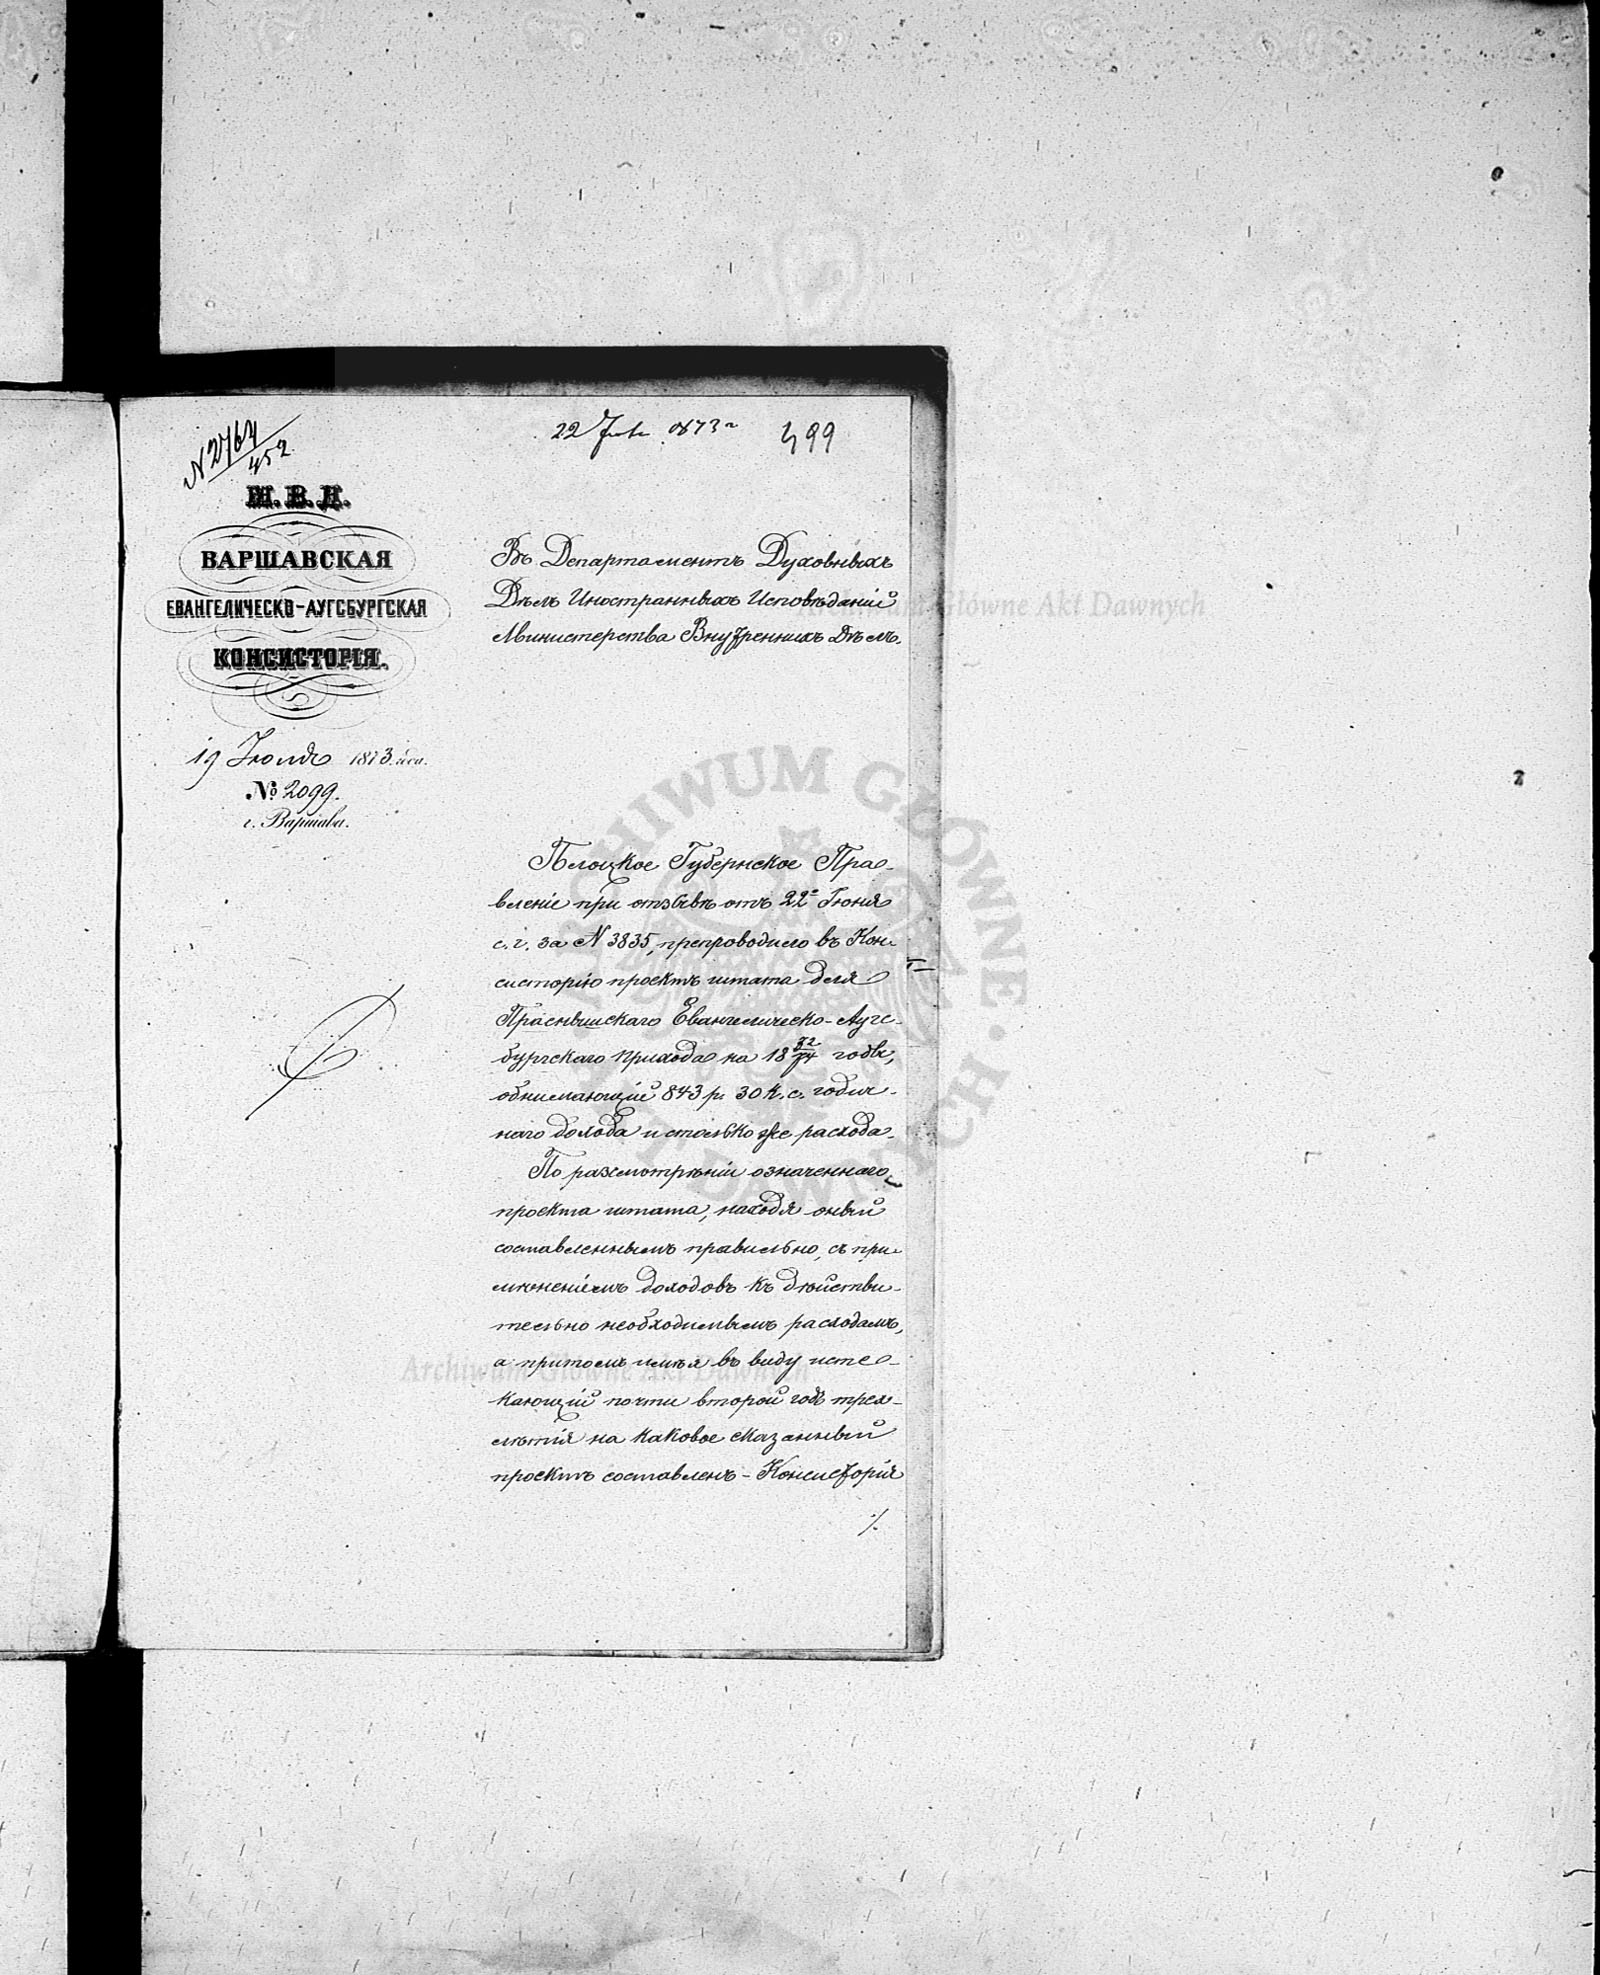 N 2764/452
22 Іюля 1873 г.
499
М. В. Д.
ВАРШАВСКАЯ
ЕВАНГЕЛИЧЕСКО-АУГСБУРГСКАЯ
КОНСИСТОРІЯ.
19 Іюля 1873 года.
№ 2099.
г. Варшава.
Въ Департаментъ Духовныхъ
Дѣлъ Иностранныхъ Исповѣданій
Министерства Внутреннихъ Дѣлъ.
Плоцкое Губернское Прав-
вленіе при отзывѣ отъ 22го Іюня
с. г. за N 3835, препроводило въ Кон-
систорію проектъ штата для
Праснышскаго Евангелическо-Аугс-
бургскаго прихода на 18 72/74 годы,
обнимающій 843 р. 30 к. с. годич-
наго дохода и столько же расхода.
По разсмотрѣніи означеннаго
проекта штата, находя оный
составленнымъ правильно, съ при-
мѣненіемъ доходовъ къ дѣйстви-
тельно необходимымъ расходамъ,
а притомъ имѣя въ виду исте-
кающій почти второй годъ трех-
лѣтія на каковое сказанный
проектъ составленъ - Консисторія
./.
Archiwum Główne Akt Dawnych
ARCHIWUM GŁÓWNE AKT DAWNYCH
Archiwum Główne Akt Dawnych